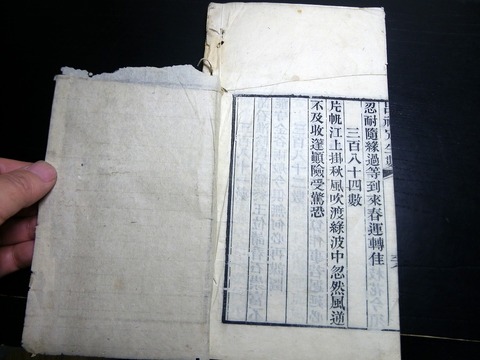 忍耐隨緣過等到來春運轉佳
三百八十四數
片帆江上掛秋風吹渡綠波中忽然風逆
不及收篷顛險受驚恐